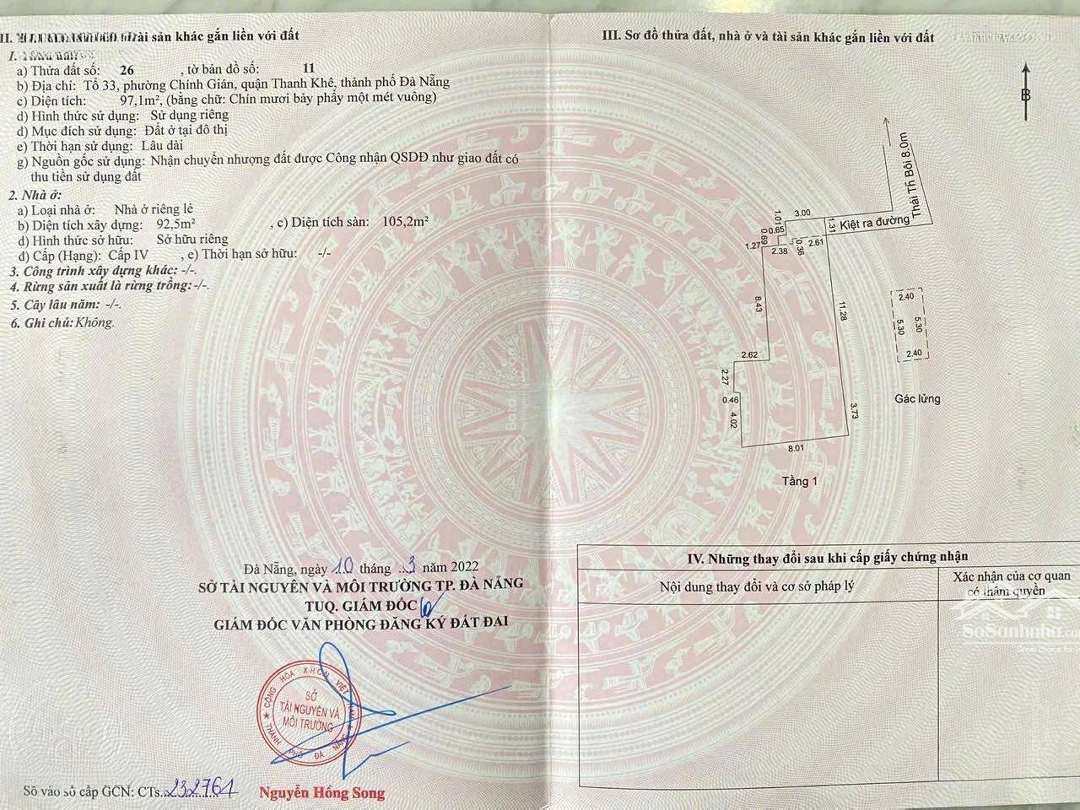 và tài sản khác gắn liền với đất
a) Thửa đất số: 26 , tờ bản đồ số: 11
b) Địa chỉ: Tổ 33, phường Chính Gián, quận Thanh Khê, thành phố Đà Nẵng
c) Diện tích: 97,1m², (bằng chữ: Chín mươi bảy phẩy một mét vuông)
d) Hình thức sử dụng: Sử dụng riêng
đ) Mục đích sử dụng: Đất ở tại đô thị
e) Thời hạn sử dụng: Lâu dài
g) Nguồn gốc sử dụng: Nhận chuyển nhượng đất được Công nhận QSDĐ như giao đất có
thu tiền sử dụng đất
2. Nhà ở:
a) Loại nhà ở: Nhà ở riêng lẻ
b) Diện tích xây dựng: 92,5m² , c) Diện tích sàn: 105,2m²
d) Hình thức sở hữu: Sở hữu riêng
đ) Cấp (Hạng): Cấp IV , e) Thời hạn sở hữu: -/-
3. Công trình xây dựng khác: -/-.
4. Rừng sản xuất là rừng trồng:-/-.
5. Cây lâu năm: -/-.
6. Ghi chú: Không.
Đà Nẵng, ngày 10 tháng 3 năm 2022
SỞ TÀI NGUYÊN VÀ MÔI TRƯỜNG TP. ĐÀ NẴNG
TUQ. GIÁM ĐỐC
GIÁM ĐỐC VĂN PHÒNG ĐĂNG KÝ ĐẤT ĐAI
CỘNG HÒA X.H.C.N VIỆT NAM
SỞ
TÀI NGUYÊN VÀ
MÔI TRƯỜNG
THÀNH PHỐ ĐÀ NẴNG
Nguyễn Hồng Song
Số vào sổ cấp GCN: CTs.232761
III. Sơ đồ thửa đất, nhà ở và tài sản khác gắn liền với đất
B
Thái Thị Bôi 8.0m
Kiệt ra đường
3.00
1.01
0.65
0.69
1.31
1.27
2.38
0.36
2.61
8.43
11.28
2.62
2.27
0.46
4.02
3.73
8.01
Tầng 1
2.40
5.30
5.30
2.40
Gác lửng
IV. Những thay đổi sau khi cấp giấy chứng nhận
Nội dung thay đổi và cơ sở pháp lý
Xác nhận của cơ quan
có thẩm quyền
SoSanhnha.com